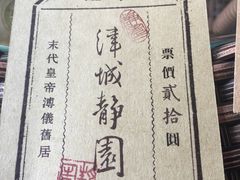 票價貳拾圓
津城靜園
末代皇帝溥儀舊居